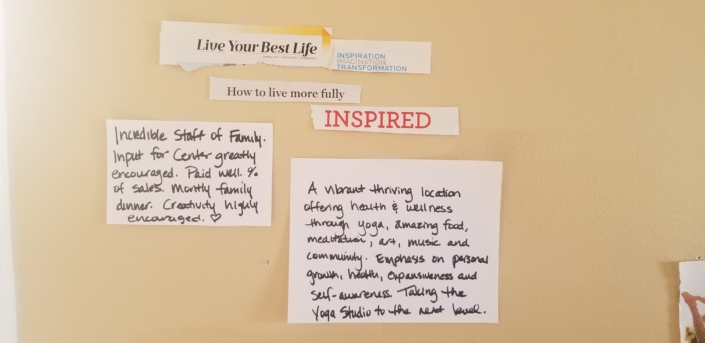 Live Your Best Life
INSPIRATION
IMAGINATION
TRANSFORMATION
How to live more fully
INSPIRED
Incredible Staff of Family.
Input for Center greatly
encouraged. Paid well. %
of sales. Montly family
dinner. Creativity highly
encouraged. ♡
A vibrant thriving location
offering health & wellness
through yoga, amazing food,
meditation, art, music and
community. Emphasis on personal
growth, health, expansiveness and
self-awareness. Taking the
Yoga Studio to the next level.